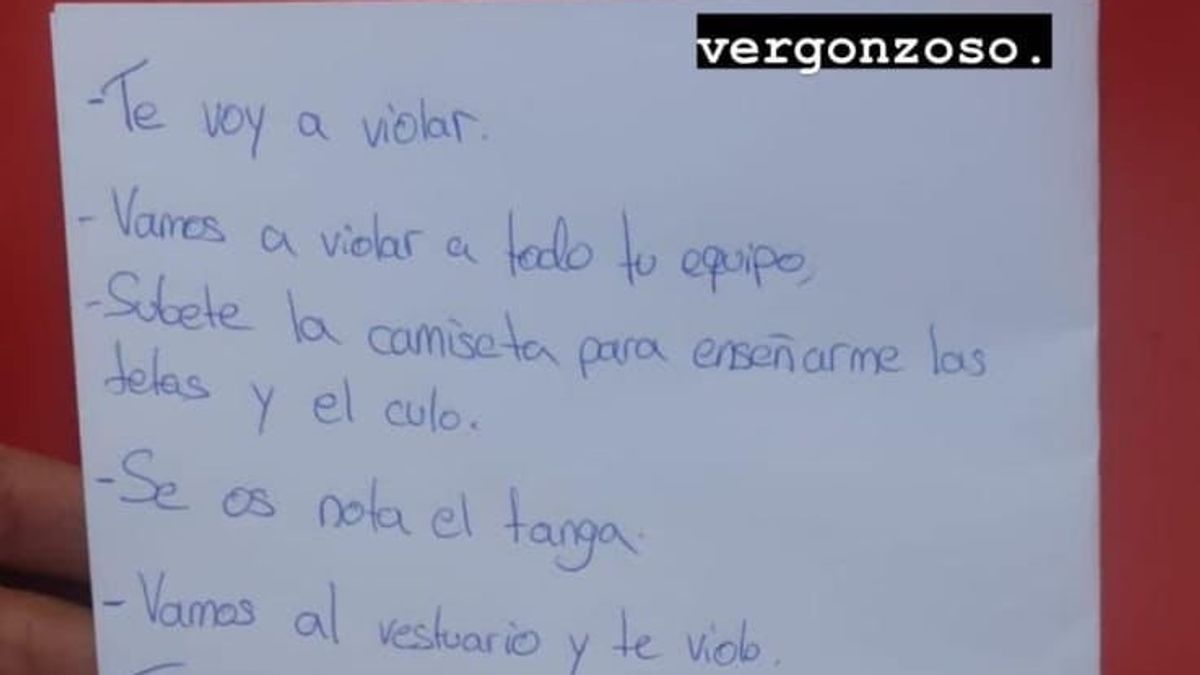 vergonzoso.
-Te voy a violar.
- Vamos a violar a todo tu equipo,
-Subete la camiseta para enseñarme las
tetas y el culo.
-Se os nota el tanga.
- Vamos al vestuario y te violo.